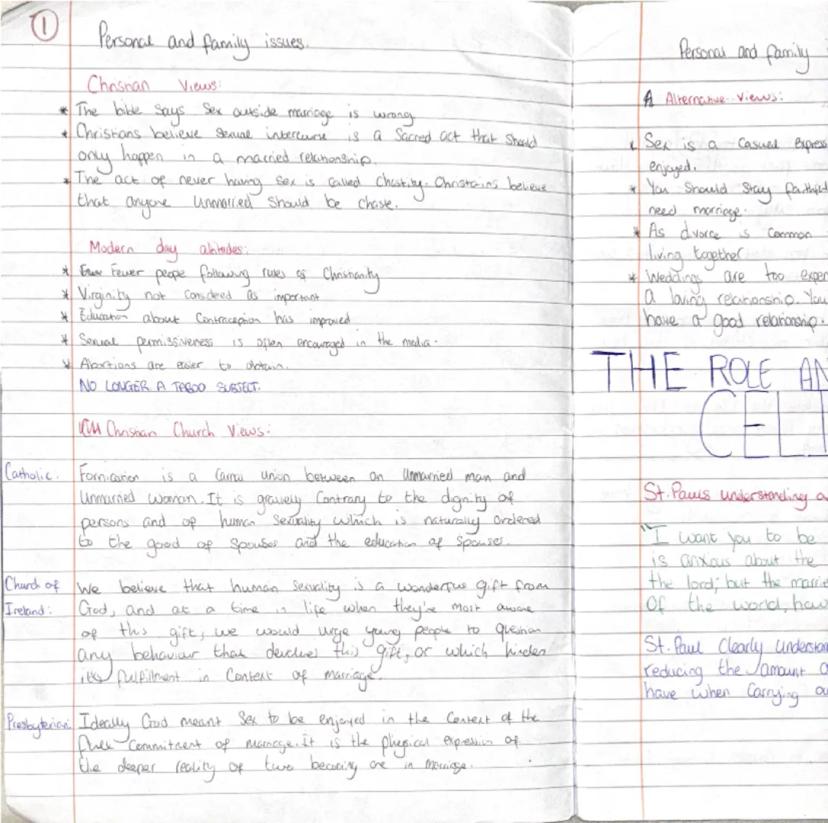 1
Personal and family issues.
Christian Views:
* The bible says Sex outside marriage is wrong
* Christians believe sexual intercourse is a Sacred act that should
only happen in a married relationship.
* The act of never having sex is called Chastity. Christains believe
that anyone Unmarried should be chaste.
Modern day attitudes:
* Fewer people following rules of Christianity
* Virginity not considered as important
* Education about Contraception has improved
* Sexual permissiveness is often encouraged in the media.
* Abortions are easier to obtain.
NO LONGER A TABOO SUBJECT.
Christian Church Views:
Catholic. Fornication is a carnal union between an unmarried man and
Unmarried woman. It is gravely contrary to the dignity of
persons and of human sexuality which is naturally ordered
to the good of spouses and the education of spouses.
Church of We believe that human sexuality is a wonderful gift from
Ireland: God, and at a time in life when they're most aware
of this gift, we would urge young people to question
any behaviour that devalues this gift, or which hinders
its fulfilment in context of marriage.
Presbyterian: Ideally God meant Sex to be enjoyed in the Context of the
Commitment of marriage. It is the physical expression of
the deeper reality of two becoming one in marriage.
Personal and family
A Alternative views:
* Sex is a casual express
enjoyed.
* You Should Stay faithful
need marriage.
* As divorce is common
living together
* Weddings are too expen
a loving relationship. You
have a good relationship.
THE ROLE AN
CELI
St. Pauls understanding o
"I want you to be
is anxious about the
the lord; but the marrie
of the world, how
St. Paul Clearly understan
reducing the amount o
have when carrying ou